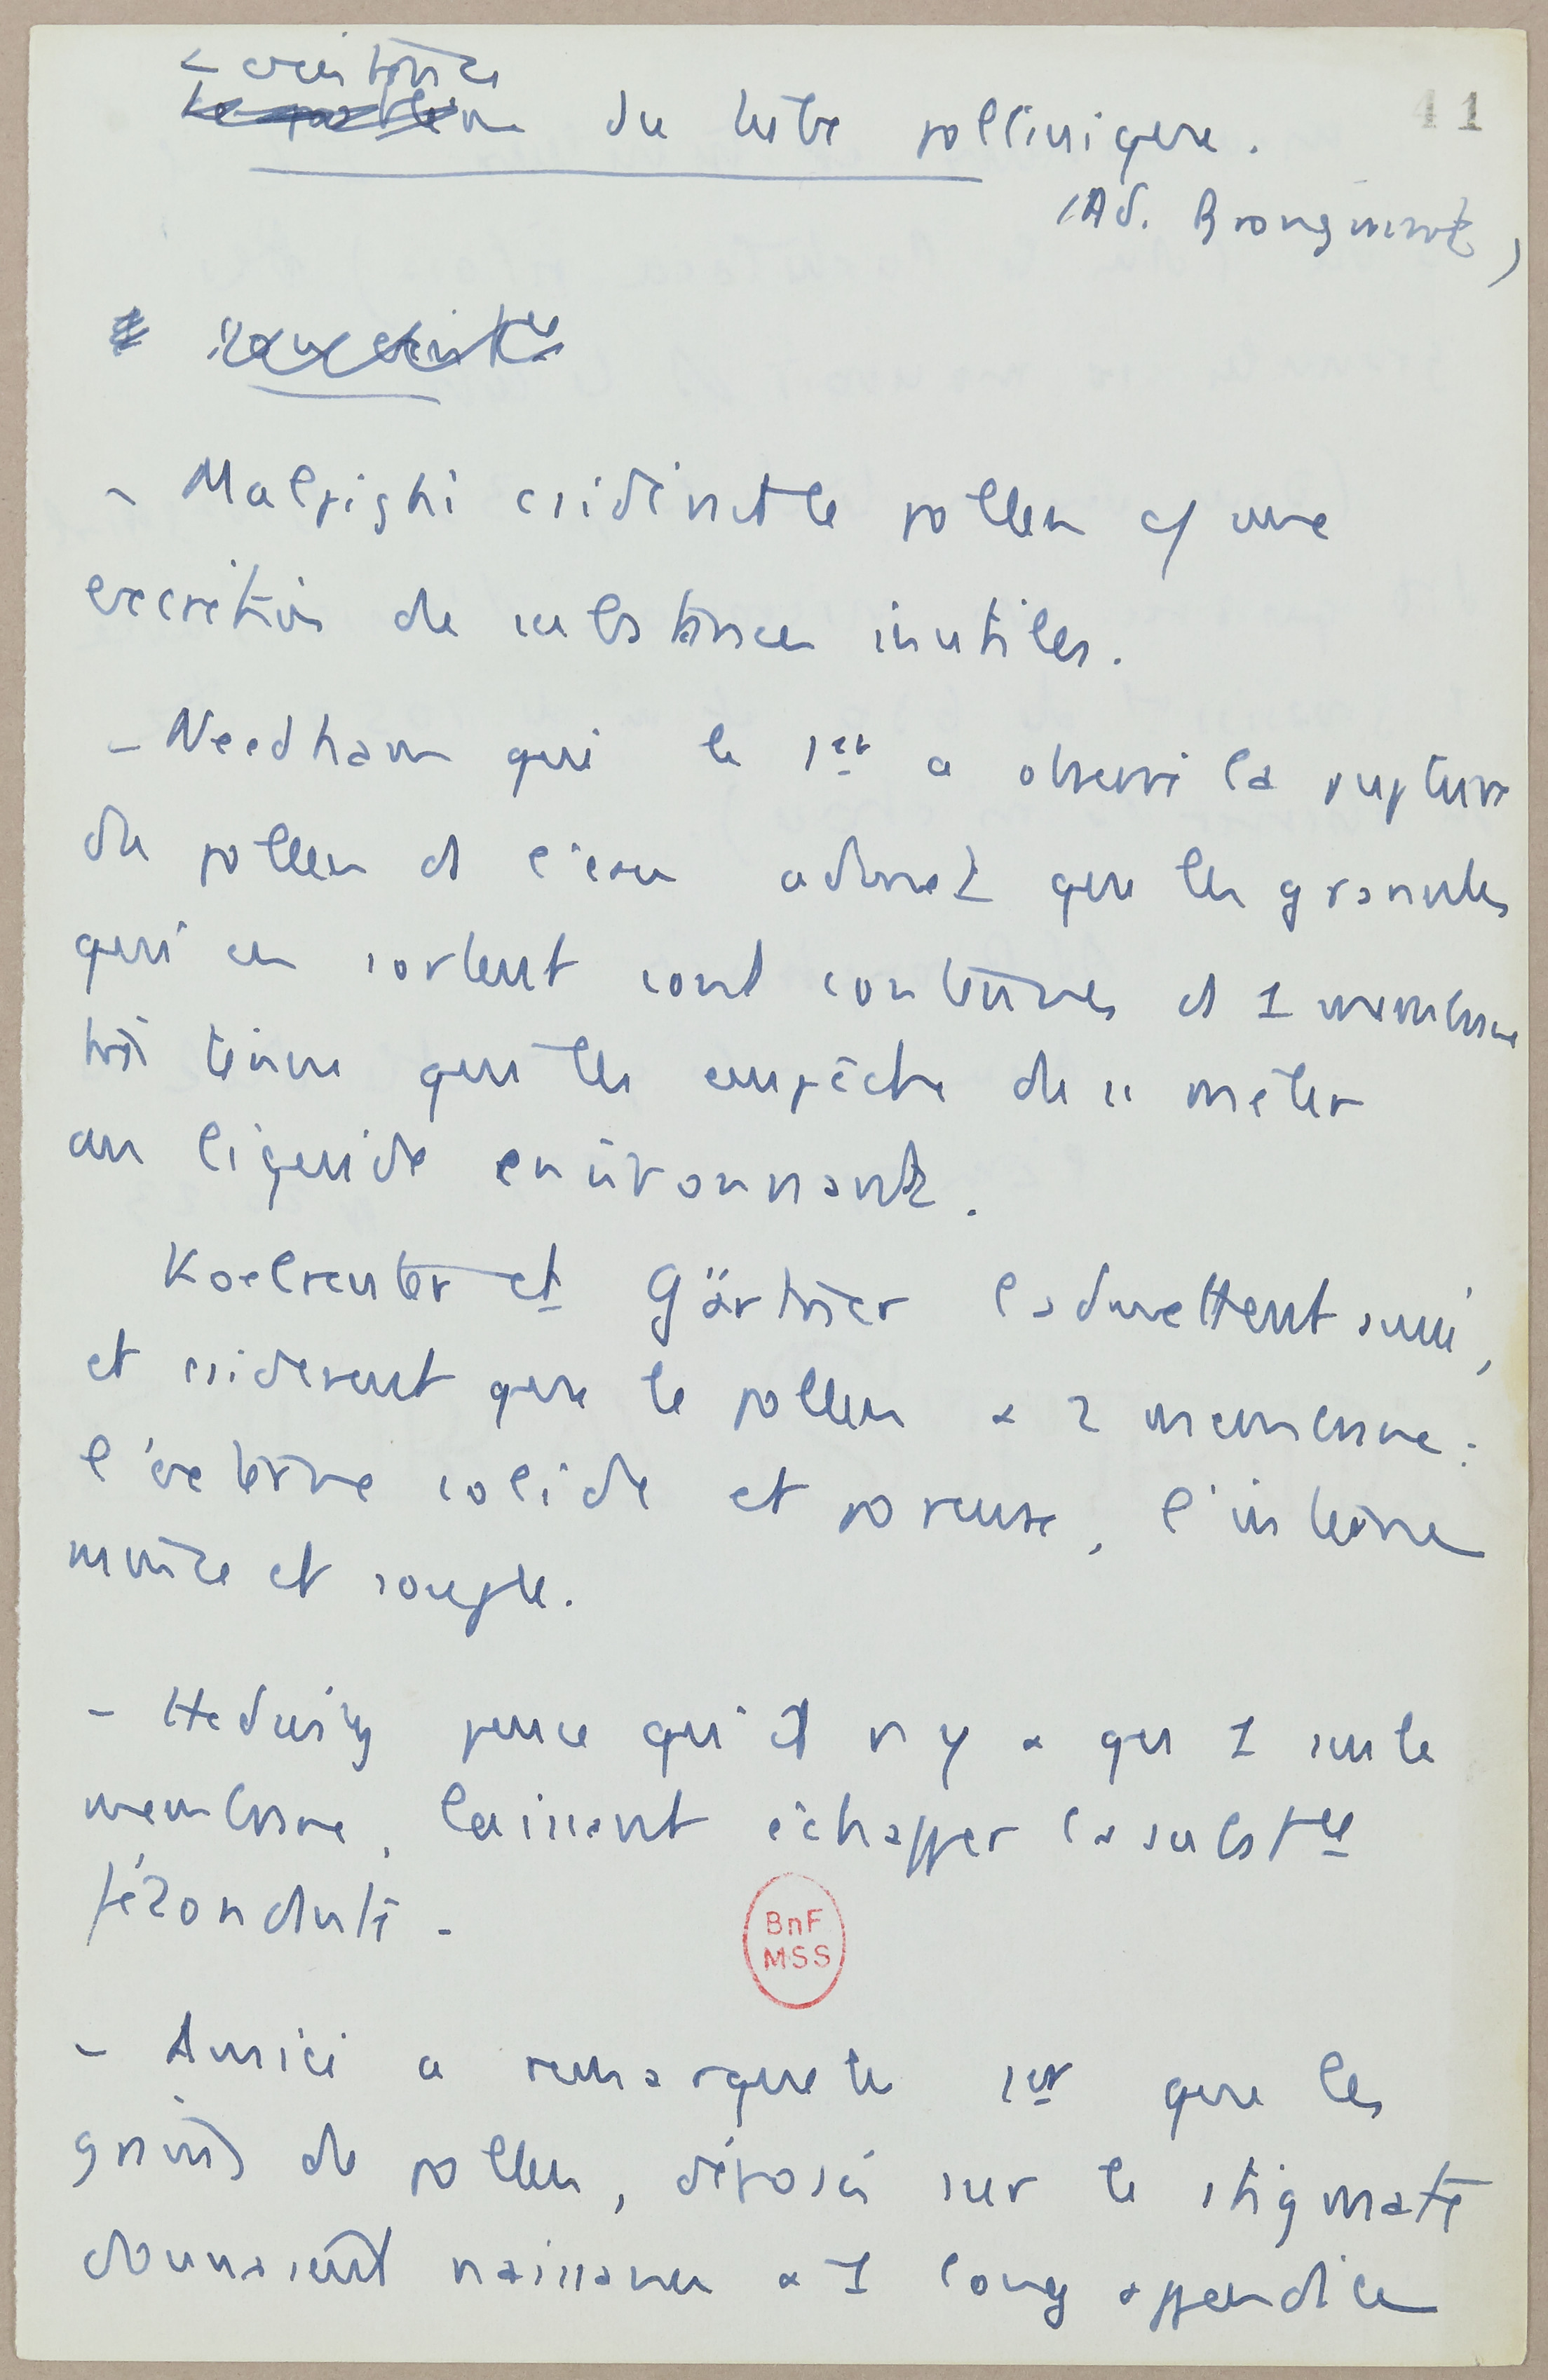 L'existence
du tube pollinique.
41
(Ad. Brongniart)
- Malpighi csidérait le pollen c/ une
excrétion de substances inutiles.
- Needham qui le 1er a observé la rupture
du pollen ds l'eau admet que les granules
qui en sortent sont contenues ds 1 membrane
très ténue qui les empêche de se mêler
au liquide environnant.
Koelreuter et Gärtner l'admettent aussi,
et csiderent que le pollen a 2 membrane :
l'externe solide et poreuse, l'interne
mince et souple.
- Hedwig pense qu'il n y a que 1 seule
membrane, laissant échapper la substce
fécondante -
BnF
MSS
- Amici a remarqué le 1er que les
grains de pollen, déposés sur le stigmate
donnaient naissance a 1 long appendice